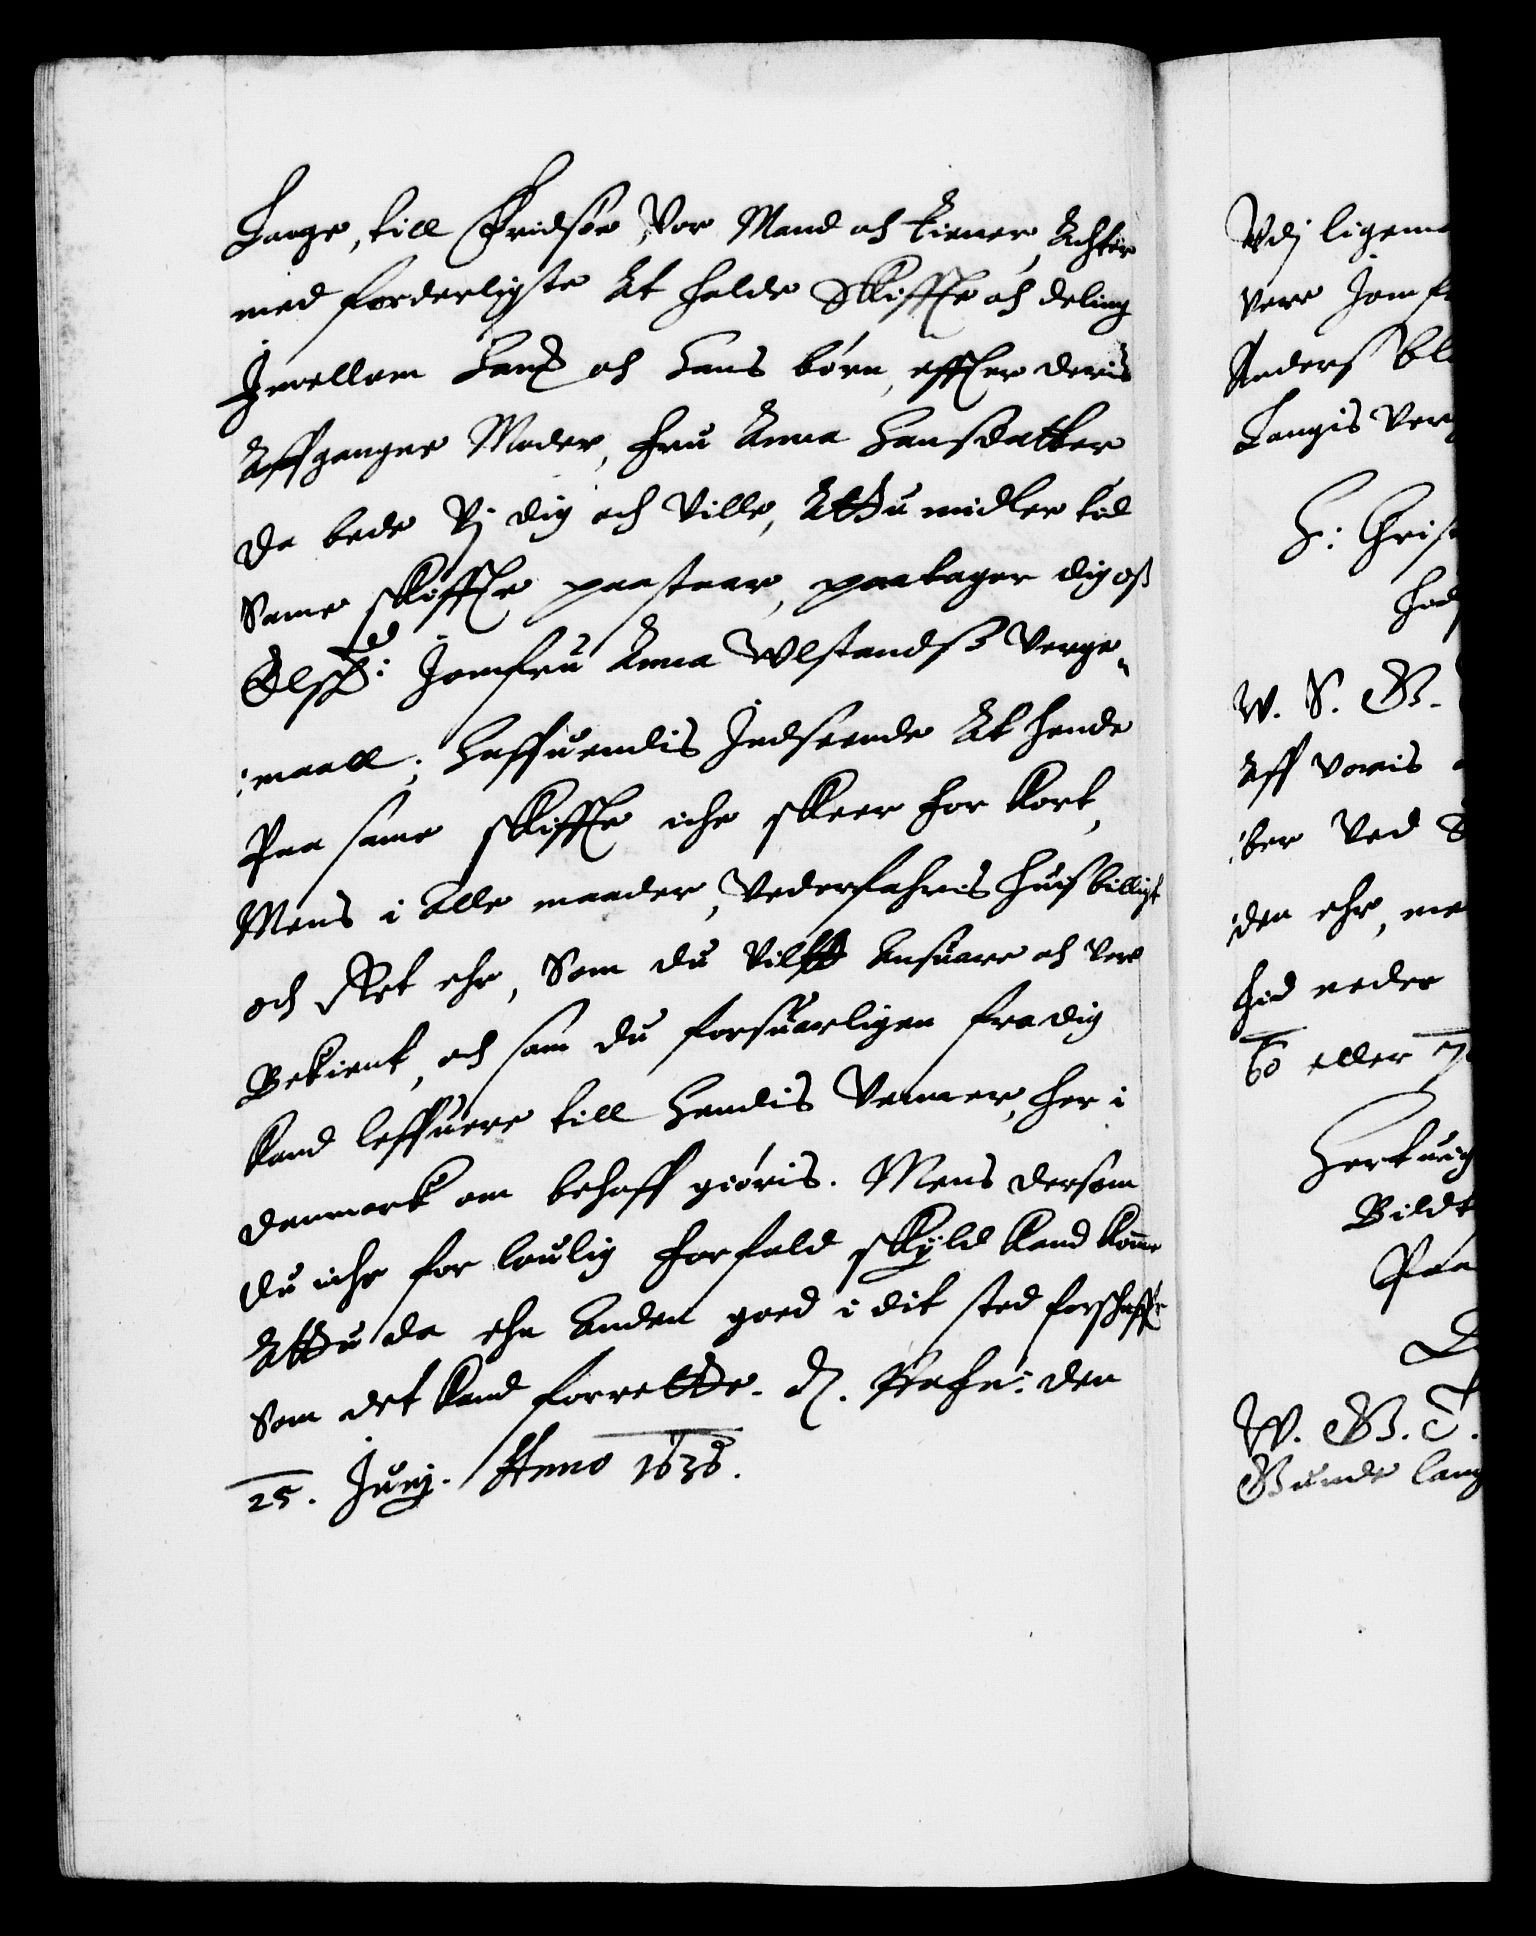 Lange, till Fridsøe, Vor Mand och tiener, Achter
med forderligste At holde Skiffte och deling
Jmellom Hans och Hans børn, effter deris
Affgangne Moder, fru Anna Hansdatter
Da bede Vj dig och Ville, Attu midler tid
Same skiffte paastaar, paatager dig oß
Elskel: Jomfru Anna Wlstandß Verge„
:maall; Haffuendis Jndseende At hende
Paa same skiffte iche skeer for kort,
Mens i Alle maader, Vederfahris huis billigt
och Ret ehr, Som du Vilst Ansuare och Vere
Bekient, och som du forsuarligen fra dig
kand leffuere till Hendis Venner, her i
Danmark om behoff giøris. Mens dersom
du iche for loulig forfald skyld kand komme
Attu da ehn Anden goed i dit sted forschaffe
Som det kand forrette. D. Hafn: den
25. Junj. Anno 1636.
Vdj ligeme
vere Jomf
Anders bl
Langis Verg
H: Christ
W. S. G.
Aff voris
:ber Ved S
:den ehr, me
hid neder
60 eller 7
Hertuig
Bildt
Paa
W. G. T.
Gunde lang